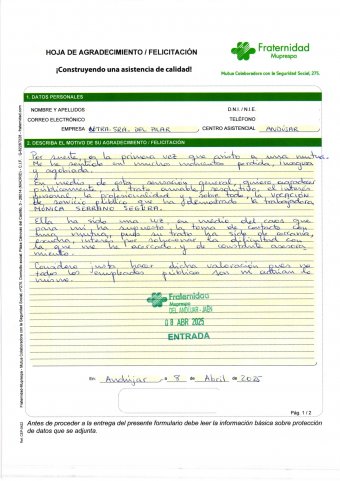 HOJA DE AGRADECIMIENTO / FELICITACIÓN
¡Construyendo una asistencia de calidad!
Fraternidad
Muprespa
Mutua Colaboradora con la Seguridad Social, 275.
1. DATOS PERSONALES
NOMBRE Y APELLIDOS
D.N.I. / N.I.E.
CORREO ELECTRÓNICO
TELÉFONO
EMPRESA NTRA. SRA. DEL PILAR CENTRO ASISTENCIAL ANDÚJAR
2. DESCRIBA EL MOTIVO DE SU AGRADECIMIENTO / FELICITACIÓN
Por suerte, es la primera vez que asisto a una mutua.
Me he sentido en muchos momentos perdida, insegura
y agobiada.
En medio de esta sensación general, quiero agradecer
públicamente, el trato amable, respetuoso, el interés
personal, la profesionalidad y sobre todo, la vocación
de servicio público que ha demostrado la trabajadora
MÓNICA SERRANO SEGURA.
Ella ha sido una luz, en medio del caos que
para mí ha supuesto la toma de contacto con
una mutua, pues su trato ha sido de cercanía,
escucha, interés por solucionar la dificultad con
la que me he acercado y de constante
Considero justo hacer dicha valoración pues no
todos los empleados públicos son ni actúan de
Fraternidad
Muprespa
DEL ANDÚJAR-JAÉN
08 ABR 2025
ENTRADA
En: Andújar a 8 de Abril de 2025
Pág. 1 / 2
Antes de proceder a la entrega del presente formulario debe leer la información básica sobre protección
de datos que se adjunta.